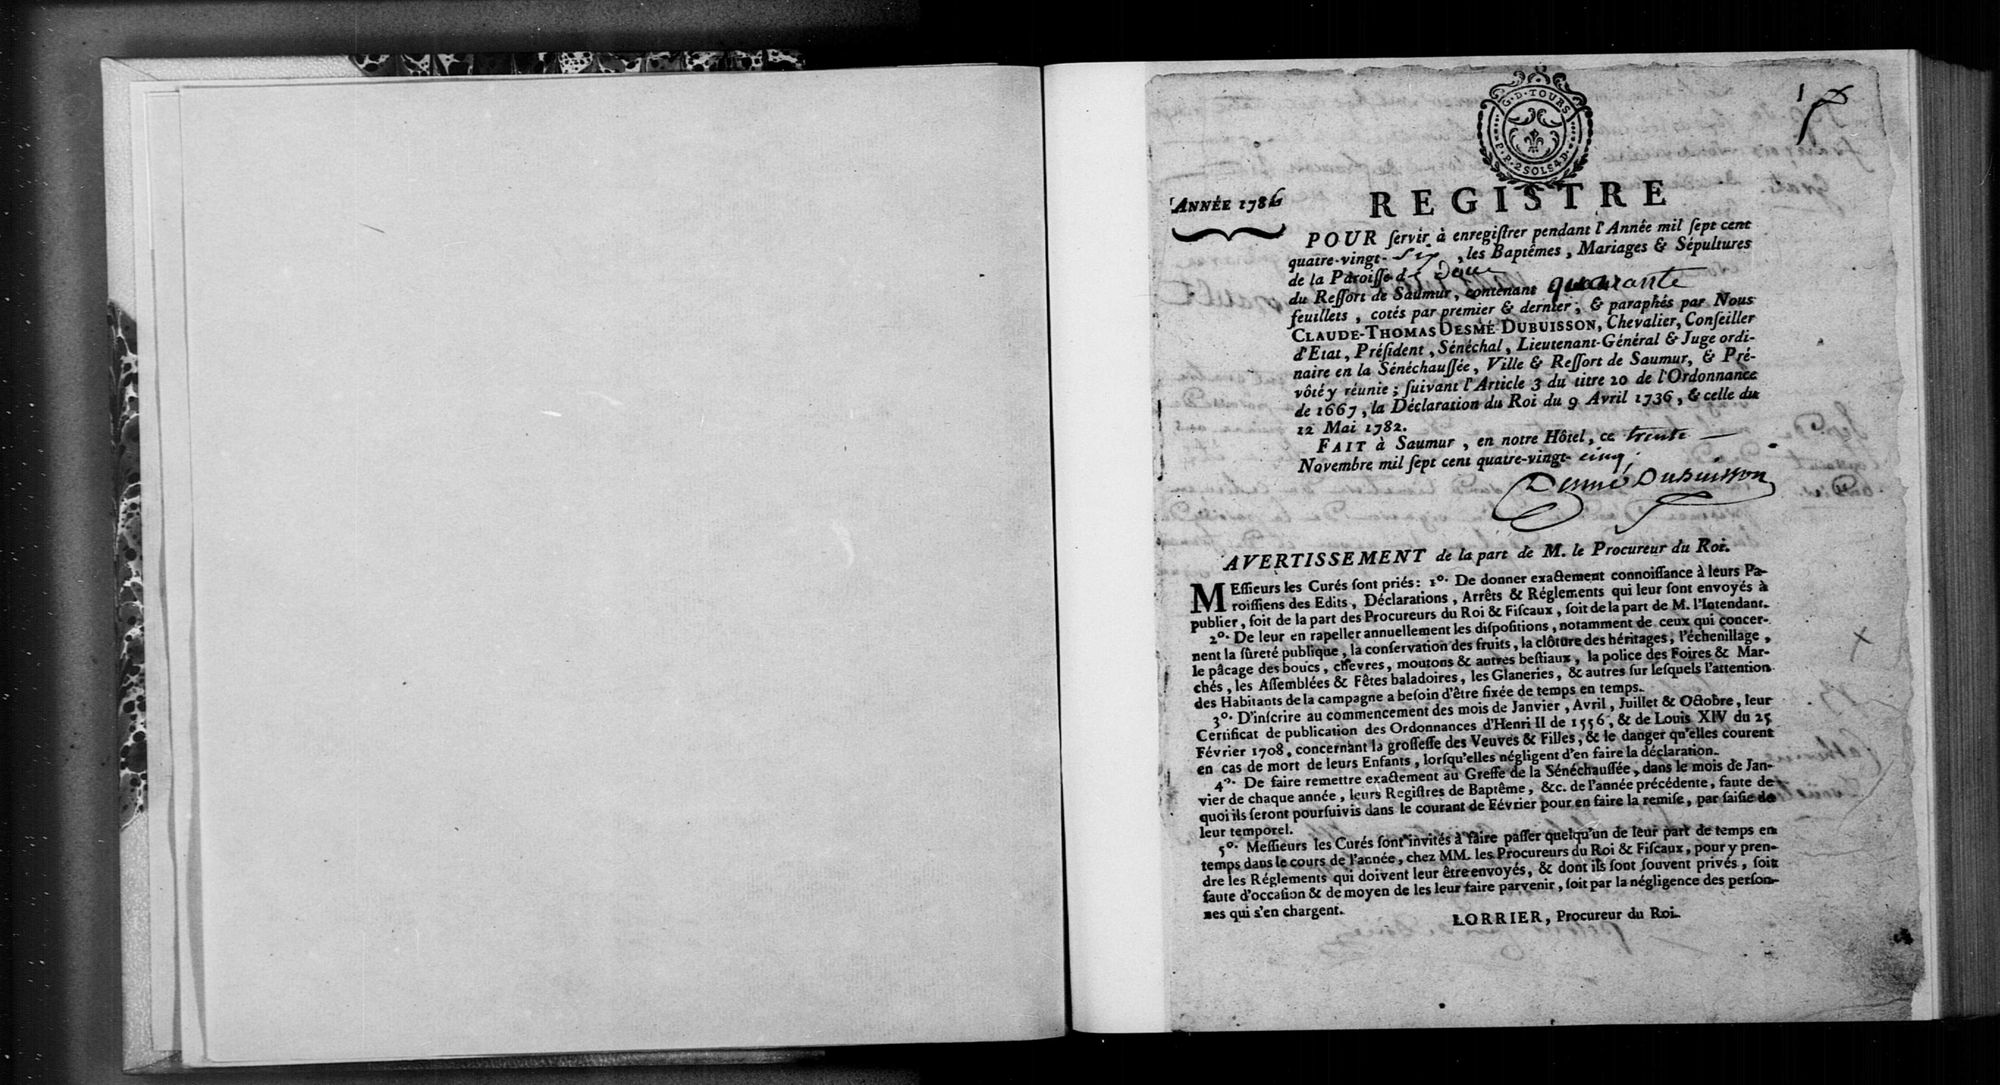 1
G. D. TOURS
P. P. 2 SOLS 4 D.
ANNÉE 1786
REGISTRE
POUR ſervir à enregiſtrer pendant l'Année mil ſept cent
quatre-vingt- six, les Baptêmes, Mariages & Sépultures
de la Paroiſſe de
du Reſſort de Saumur, contenant quarante
feuillets, cotés par premier & dernier; & paraphés par Nous
CLAUDE-THOMAS DESMÉ DUBUISSON, Chevalier, Conſeiller
d'Etat, Préſident, Sénéchal, Lieutenant-Général & Juge ordi-
naire en la Sénéchauſſée, Ville & Reſſort de Saumur, & Pré-
vôté y réunie; ſuivant l'Article 3 du titre 20 de l'Ordonnance
de 1667, la Déclaration du Roi du 9 Avril 1736, & celle du
12 Mai 1782.
FAIT à Saumur, en notre Hôtel, ce trente
Novembre mil ſept cent quatre-vingt- cinq;
Desmé Dubuisson
AVERTISSEMENT de la part de M. le Procureur du Roi.
MEſſieurs les Curés ſont priés: 1°. De donner exactement connoiſſance à leurs Pa-
roiſſiens des Edits, Déclarations, Arrêts & Réglements qui leur ſont envoyés à
publier, ſoit de la part des Procureurs du Roi & Fiſcaux, ſoit de la part de M. l'Intendant.
2°. De leur en rapeller annuellement les diſpoſitions, notamment de ceux qui concer-
nent la ſûreté publique, la conſervation des fruits, la clôture des héritages, l'échenillage,
le pâcage des boucs, chevres, moutons & autres beſtiaux, la police des Foires & Mar-
chés, les Aſſemblées & Fêtes baladoires, les Glaneries, & autres ſur leſquels l'attention
des Habitants de la campagne a beſoin d'être fixée de temps en temps.
3°. D'inſcrire au commencement des mois de Janvier, Avril, Juillet & Octobre, leur
Certificat de publication des Ordonnances d'Henri II de 1556, & de Louis XIV du 25
Février 1708, concernant la groſſeſſe des Veuves & Filles, & le danger qu'elles courent
en cas de mort de leurs Enfants, lorſqu'elles négligent d'en faire la déclaration.
4°. De faire remettre exactement au Greffe de la Sénéchauſſée, dans le mois de Jan-
vier de chaque année, leurs Regiſtres de Baptême, &c. de l'année précédente, faute de
quoi ils ſeront pourſuivis dans le courant de Février pour en faire la remiſe, par ſaiſie de
leur temporel.
5°. Meſſieurs les Curés ſont invités à faire paſſer quelqu'un de leur part de temps en
temps dans le cours de l'année, chez MM. les Procureurs du Roi & Fiſcaux, pour y pren-
dre les Réglements qui doivent leur être envoyés, & dont ils ſont ſouvent privés, ſoit
faute d'occaſion & de moyen de les leur faire parvenir, ſoit par la négligence des perſon-
nes qui s'en chargent.
LORRIER, Procureur du Roi.